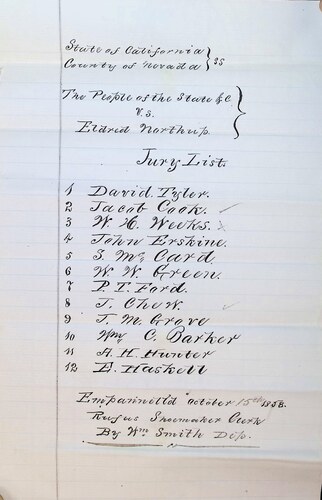 State of California } SS
County of Nevada
The People of the State &C
V.S.
Eldred Northup.
Jury List.
1 David Tyler.
2 Jacob Cook.
3 W. H. Weeks.
4 John Erskine.
5 S. Mc Card.
6 W. W. Green.
7 P. T. Ford.
8 T. Chew.
9 T. M. Grove
10 Wm C. Barker
11 A. H. Hunter
12 E. Haskell
Empannelld October 15th 1858.
Rufus Shoemaker Clerk
By Wm Smith Dep.